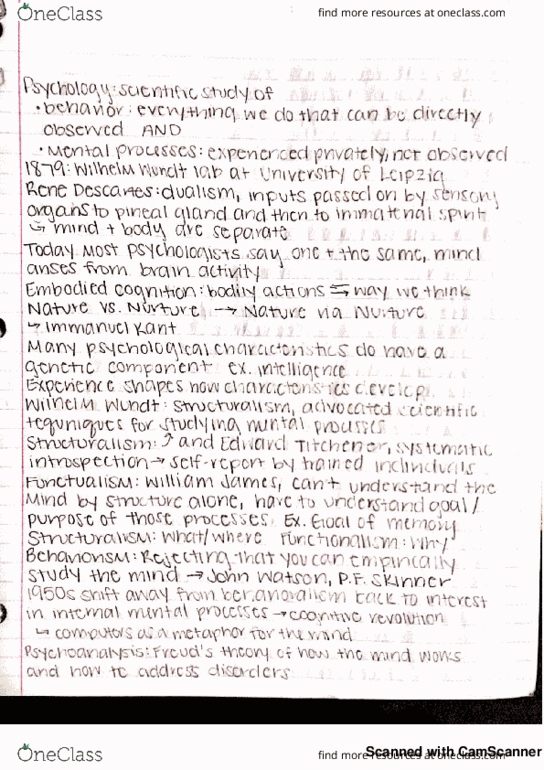 OneClass
find more resources at oneclass.com
Psychology: scientific study of
• behavior: everything we do that can be directly
observed AND
• Mental processes: experienced privately, not observed
1879: Wilhelm Wundt lab at University of Leipzig
Rene Descartes: dualism, inputs passed on by sensory
organs to pineal gland and then to immaterial spirit
↳ mind + body are separate
Today most psychologists say one + the same, mind
arises from brain activity
Embodied cognition: bodily actions ⇆ way we think
Nature vs. Nurture → Nature via Nurture
↳ Immanuel Kant
Many psychological characteristics do have a
genetic component ex. intelligence
Experience shapes how characteristics develop.
Wilhelm Wundt: Structuralism, advocated scientific
tequniques for studying mental processes
Structuralism: ↑ and Edward Titchener, systematic
introspection → self-report by trained individuals
Functualism: William James, can't understand the
Mind by structure alone, have to understand goal/
purpose of those processes. Ex. Goal of memory
Structuralism: What/where Functionalism: Why
Behaviorism: Rejecting that you can empirically
study the mind → John Watson, P.F. Skinner
1950s shift away from behavioralism back to interest
in internal mental processes → cognitive revolution
↳ computers as a metaphor for the mind
Psychoanalysis: Freud's theory of how the mind works
and how to address disorders
OneClass
find more resources at oneclass.com
Scanned with CamScanner